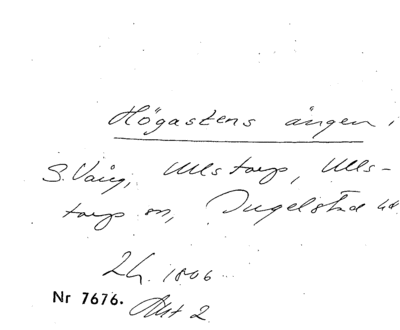 Högastens ängen i
S. Vång, Ullstorp, Ulls-
torps sn, Ingelstad hd
2h. 1806
Nr 7676. Akt 2